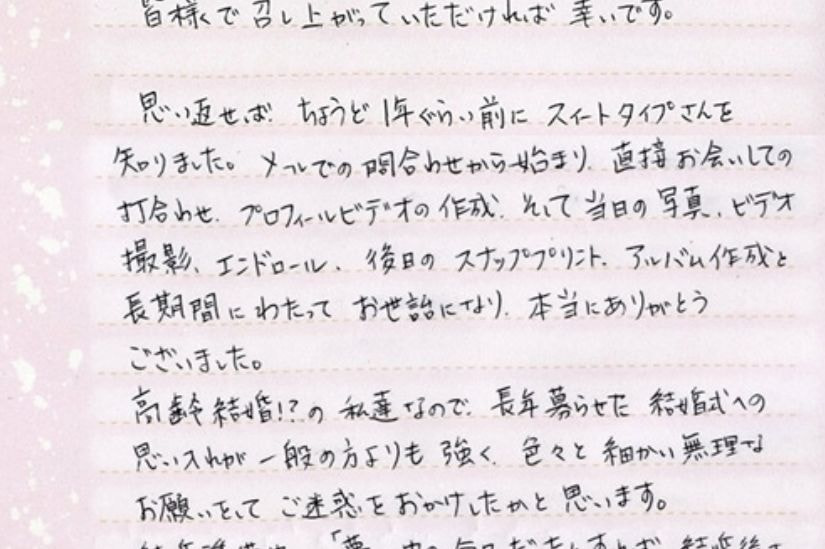 皆様で召し上がっていただければ幸いです。
思い返せば、ちょうど1年ぐらい前にスイートタイプさんを
知りました。メールでの問合わせから始まり、直接お会いしての
打合わせ、プロフィールビデオの作成、そして当日の写真、ビデオ
撮影、エンドロール、後日のスナッププリント、アルバム作成と
長期間にわたってお世話になり、本当にありがとう
ございました。
高齢結婚!?の私達なので、長年募らせた結婚式への
思い入れが一般の方よりも強く、色々と細かい無理な
お願いをしてご迷惑をおかけしたかと思います。